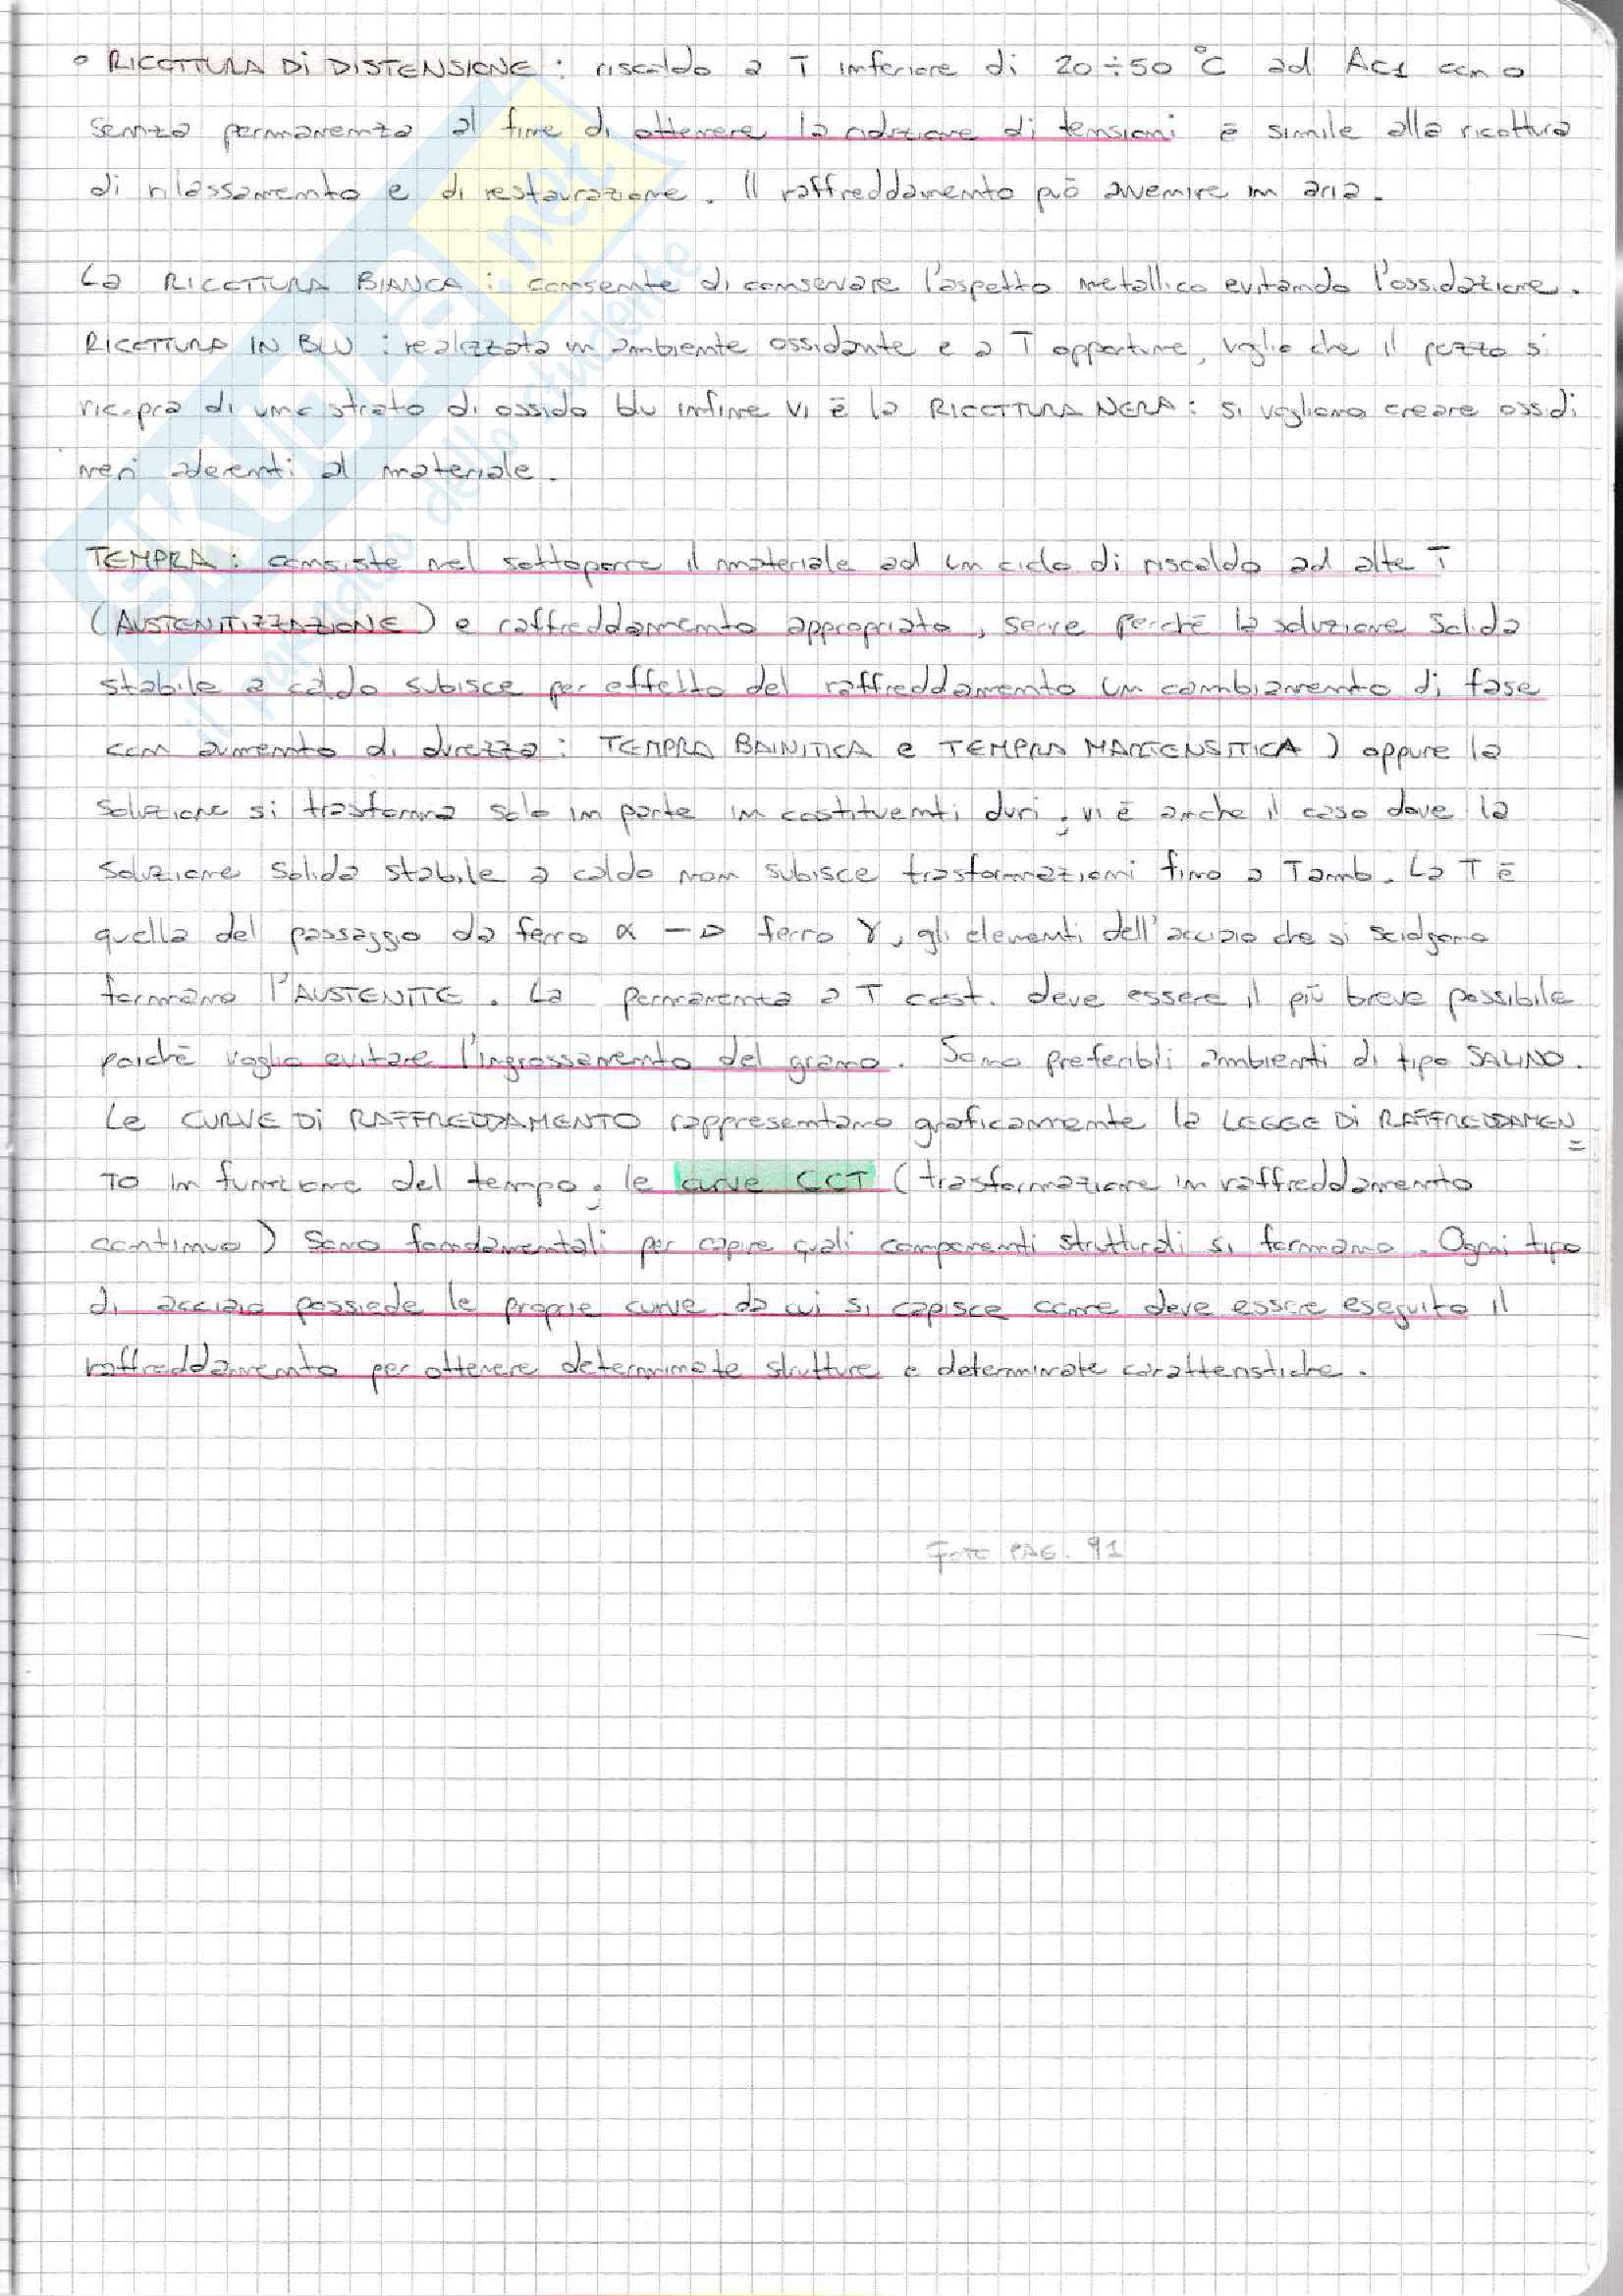 ° RICOTTURA DI DISTENSIONE : riscaldo a T inferiore di 20÷50 °C ad Ac1 con o
senza permanenza al fine di ottenere la riduzione di tensioni è simile alla ricottura
di rilassamento e di restaurazione. Il raffreddamento può avvenire in aria.
La RICOTTURA BIANCA : consente di conservare l'aspetto metallico evitando l'ossidazione.
RICOTTURA IN BLU : realizzata in ambiente ossidante e a T opportune, voglio che il pezzo si
ricopra di uno strato di ossido blu infine vi è la RICOTTURA NERA : si vogliono creare ossidi
neri aderenti al materiale.
TEMPRA : consiste nel sottoporre il materiale ad un ciclo di riscaldo ad alte T
(AUSTENITIZZAZIONE) e raffreddamento appropriato, serve perché la soluzione solida
stabile a caldo subisce per effetto del raffreddamento un cambiamento di fase
con aumento di durezza : TEMPRA BAINITICA e TEMPRA MARTENSITICA ) oppure la
soluzione si trasforma solo in parte in costituenti duri ; vi è anche il caso dove la
soluzione solida stabile a caldo non subisce trasformazioni fino a Tamb. La T è
quella del passaggio da ferro α → ferro γ, gli elementi dell'acciaio che si sciolgono
formano l'AUSTENITE. La permanenza a T cost. deve essere il più breve possibile
poiché voglio evitare l'ingrossamento del grano. Sono preferibili ambienti di tipo SALINO.
Le CURVE DI RAFFREDDAMENTO rappresentano graficamente la LEGGE DI RAFFREDDAMEN=
TO in funzione del tempo ; le curve CCT (trasformazione in raffreddamento
continuo) sono fondamentali per capire quali componenti strutturali si formano. Ogni tipo
di acciaio possiede le proprie curve da cui si capisce come deve essere eseguito il
raffreddamento per ottenere determinate strutture e determinate caratteristiche.
FOTO PAG. 91
SKUOLA.net
il paradiso dello studente